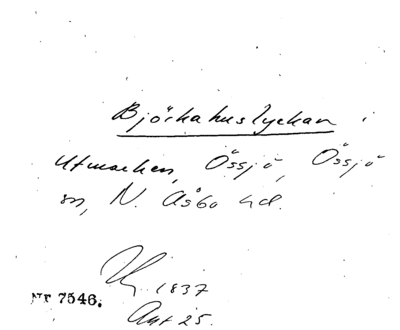 Björkahuslyckan i
Utmarken, Össjö, Össjö
sn, N. Åsbo hd.
1837
Nr 7546.
Akt 25.